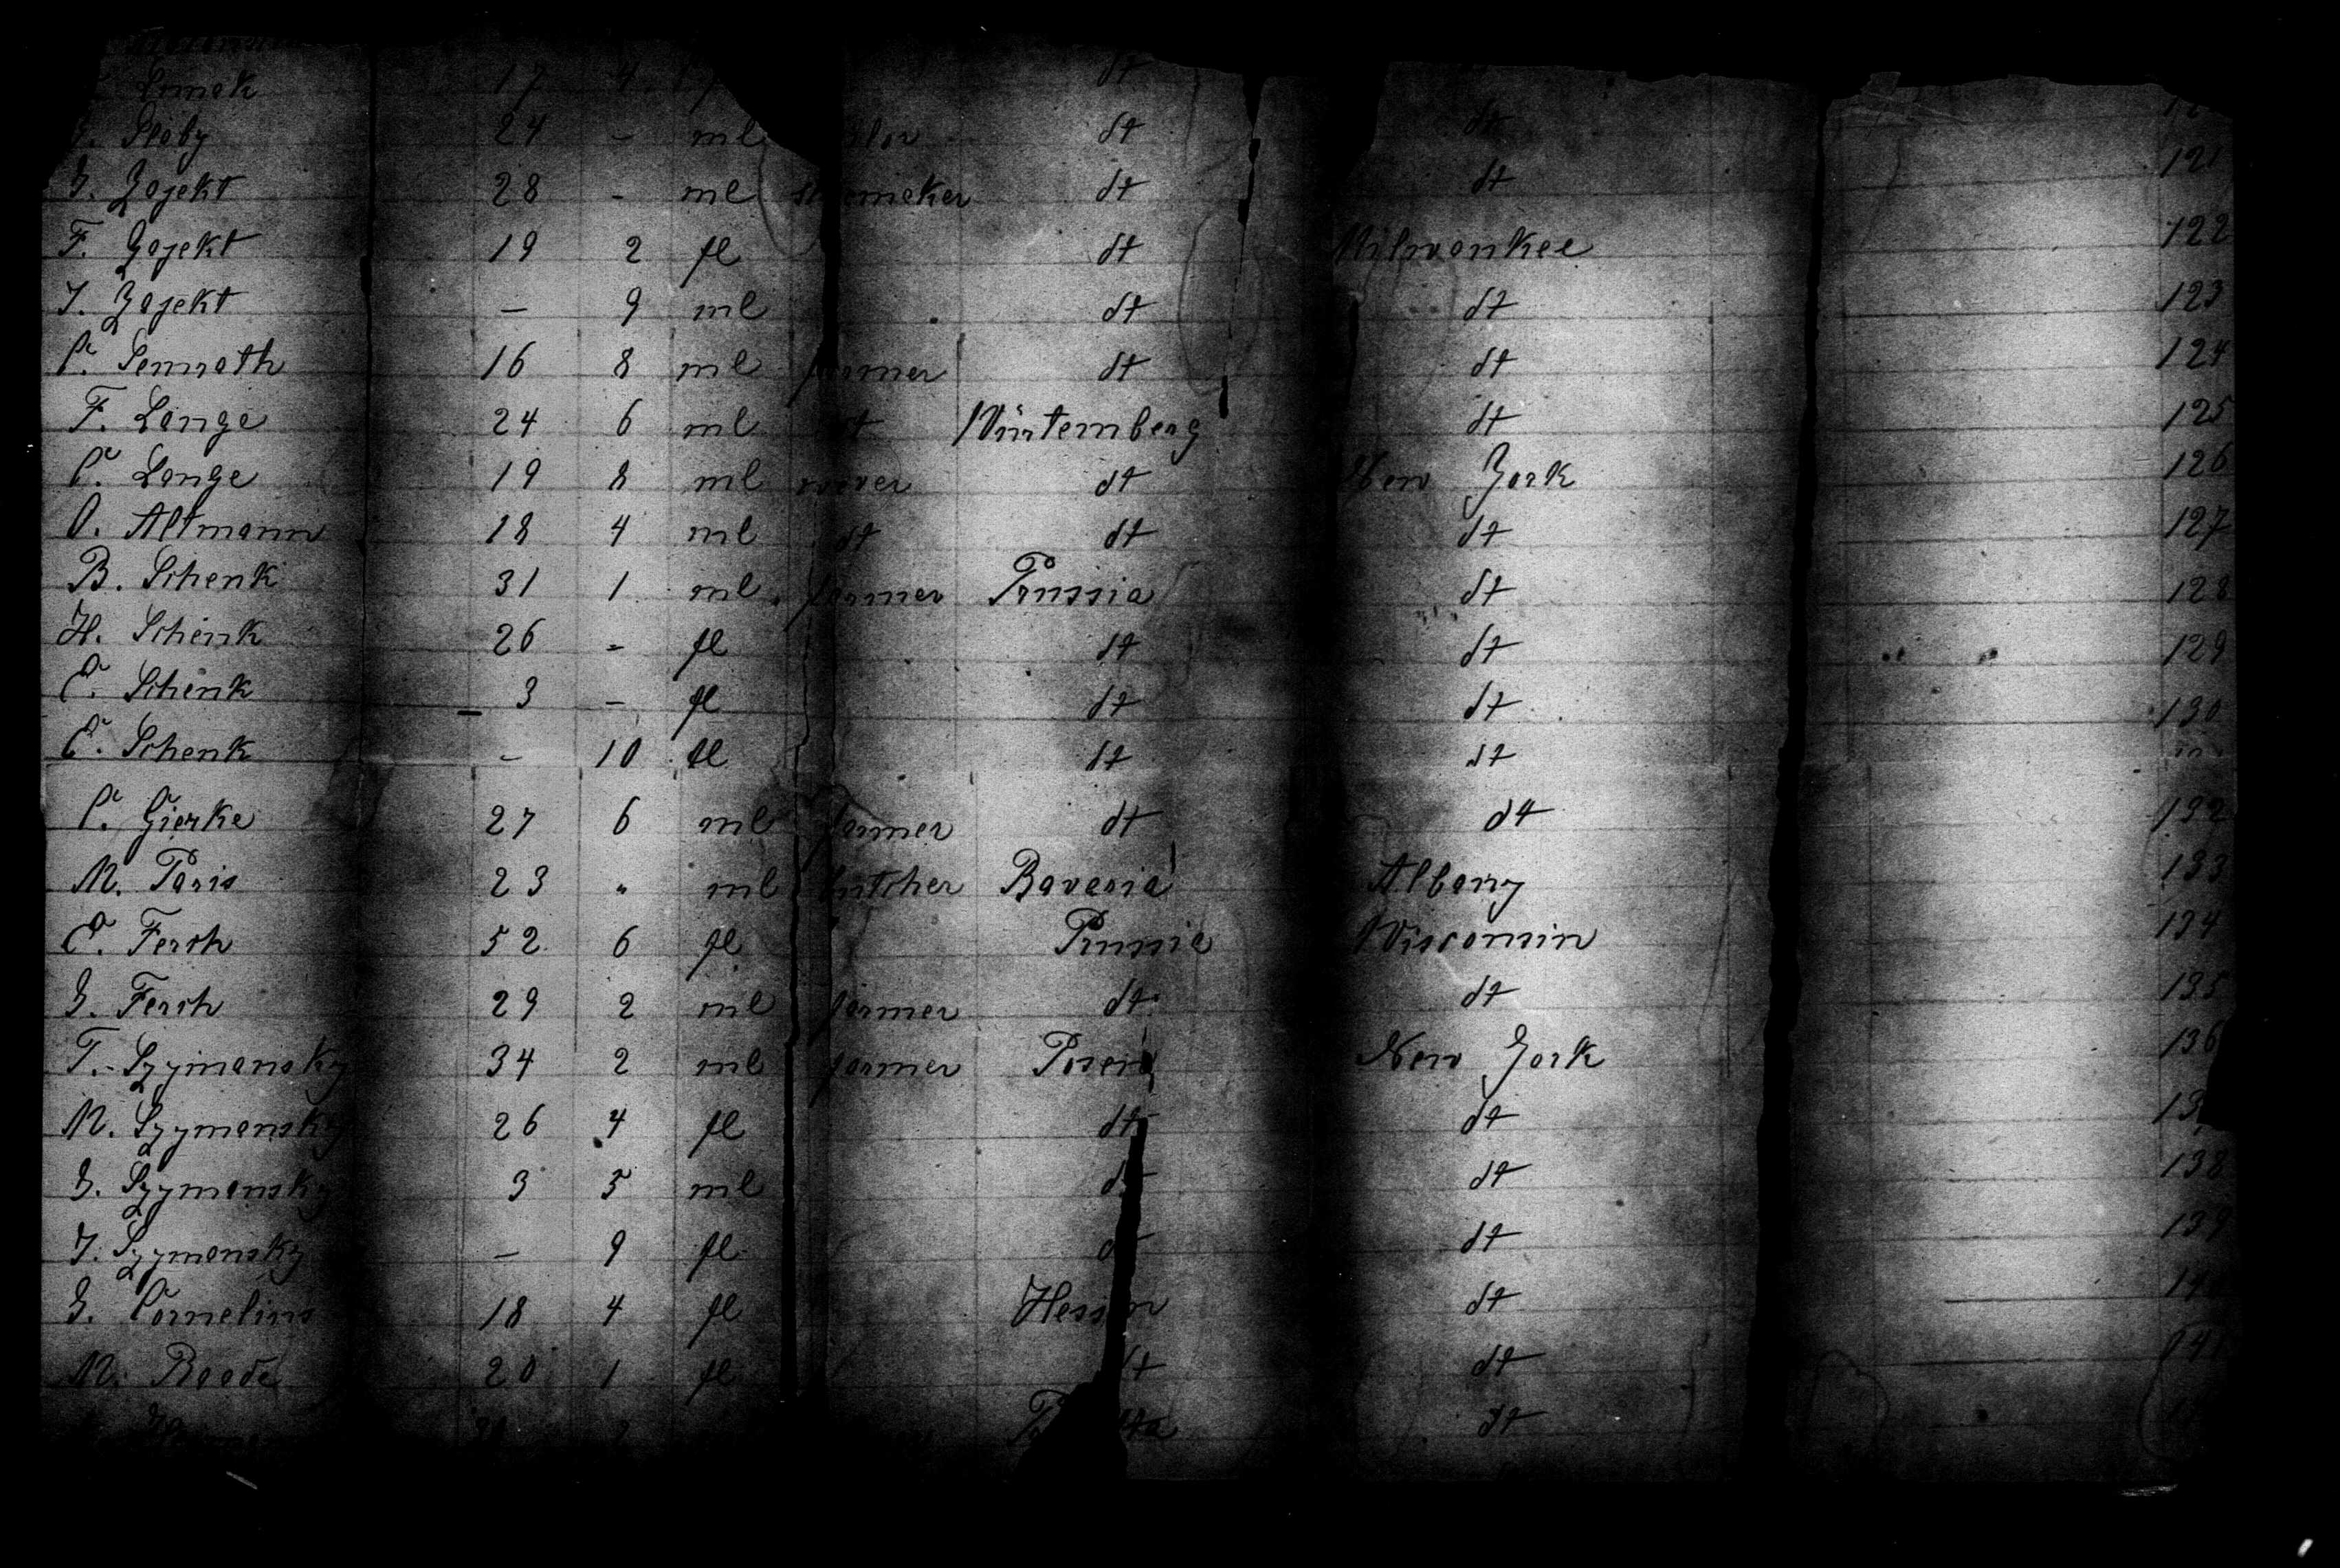 Lomok 17 4 dt
J. Sloby 24 - ml dt dt
J. Zajekt 28 - ml shoemaker dt dt 121
F. Zajekt 19 2 fl dt Milwaukee 122
J. Zajekt - 9 ml dt dt 123
C. Sennoth 16 8 ml farmer dt dt 124
F. Lange 24 6 ml dt Würtemberg dt 125
C. Lange 19 8 ml dt New York 126
O. Altmann 18 4 ml dt dt dt 127
B. Schenk 31 1 ml farmer Prussia dt 128
H. Schenk 26 - fl dt dt 129
E. Schenk 3 - fl dt dt 130
E. Schenk - 10 fl dt dt
C. Gierke 27 6 ml farmer dt dt 132
M. Paris 23 " ml butcher Bavaria Albany 133
E. Fersh 52 6 fl Prussia Wisconsin 134
J. Fersh 29 2 ml farmer dt dt 135
T. Szymansky 34 2 ml farmer Posen New York 136
M. Szymansky 26 4 fl dt dt 13
J. Szymansky 3 5 ml dt dt 138
J. Szymansky - 9 fl dt dt 139
J. Cornelius 18 4 fl Hessen dt 140
M. Baade 20 1 fl dt dt 141
dt